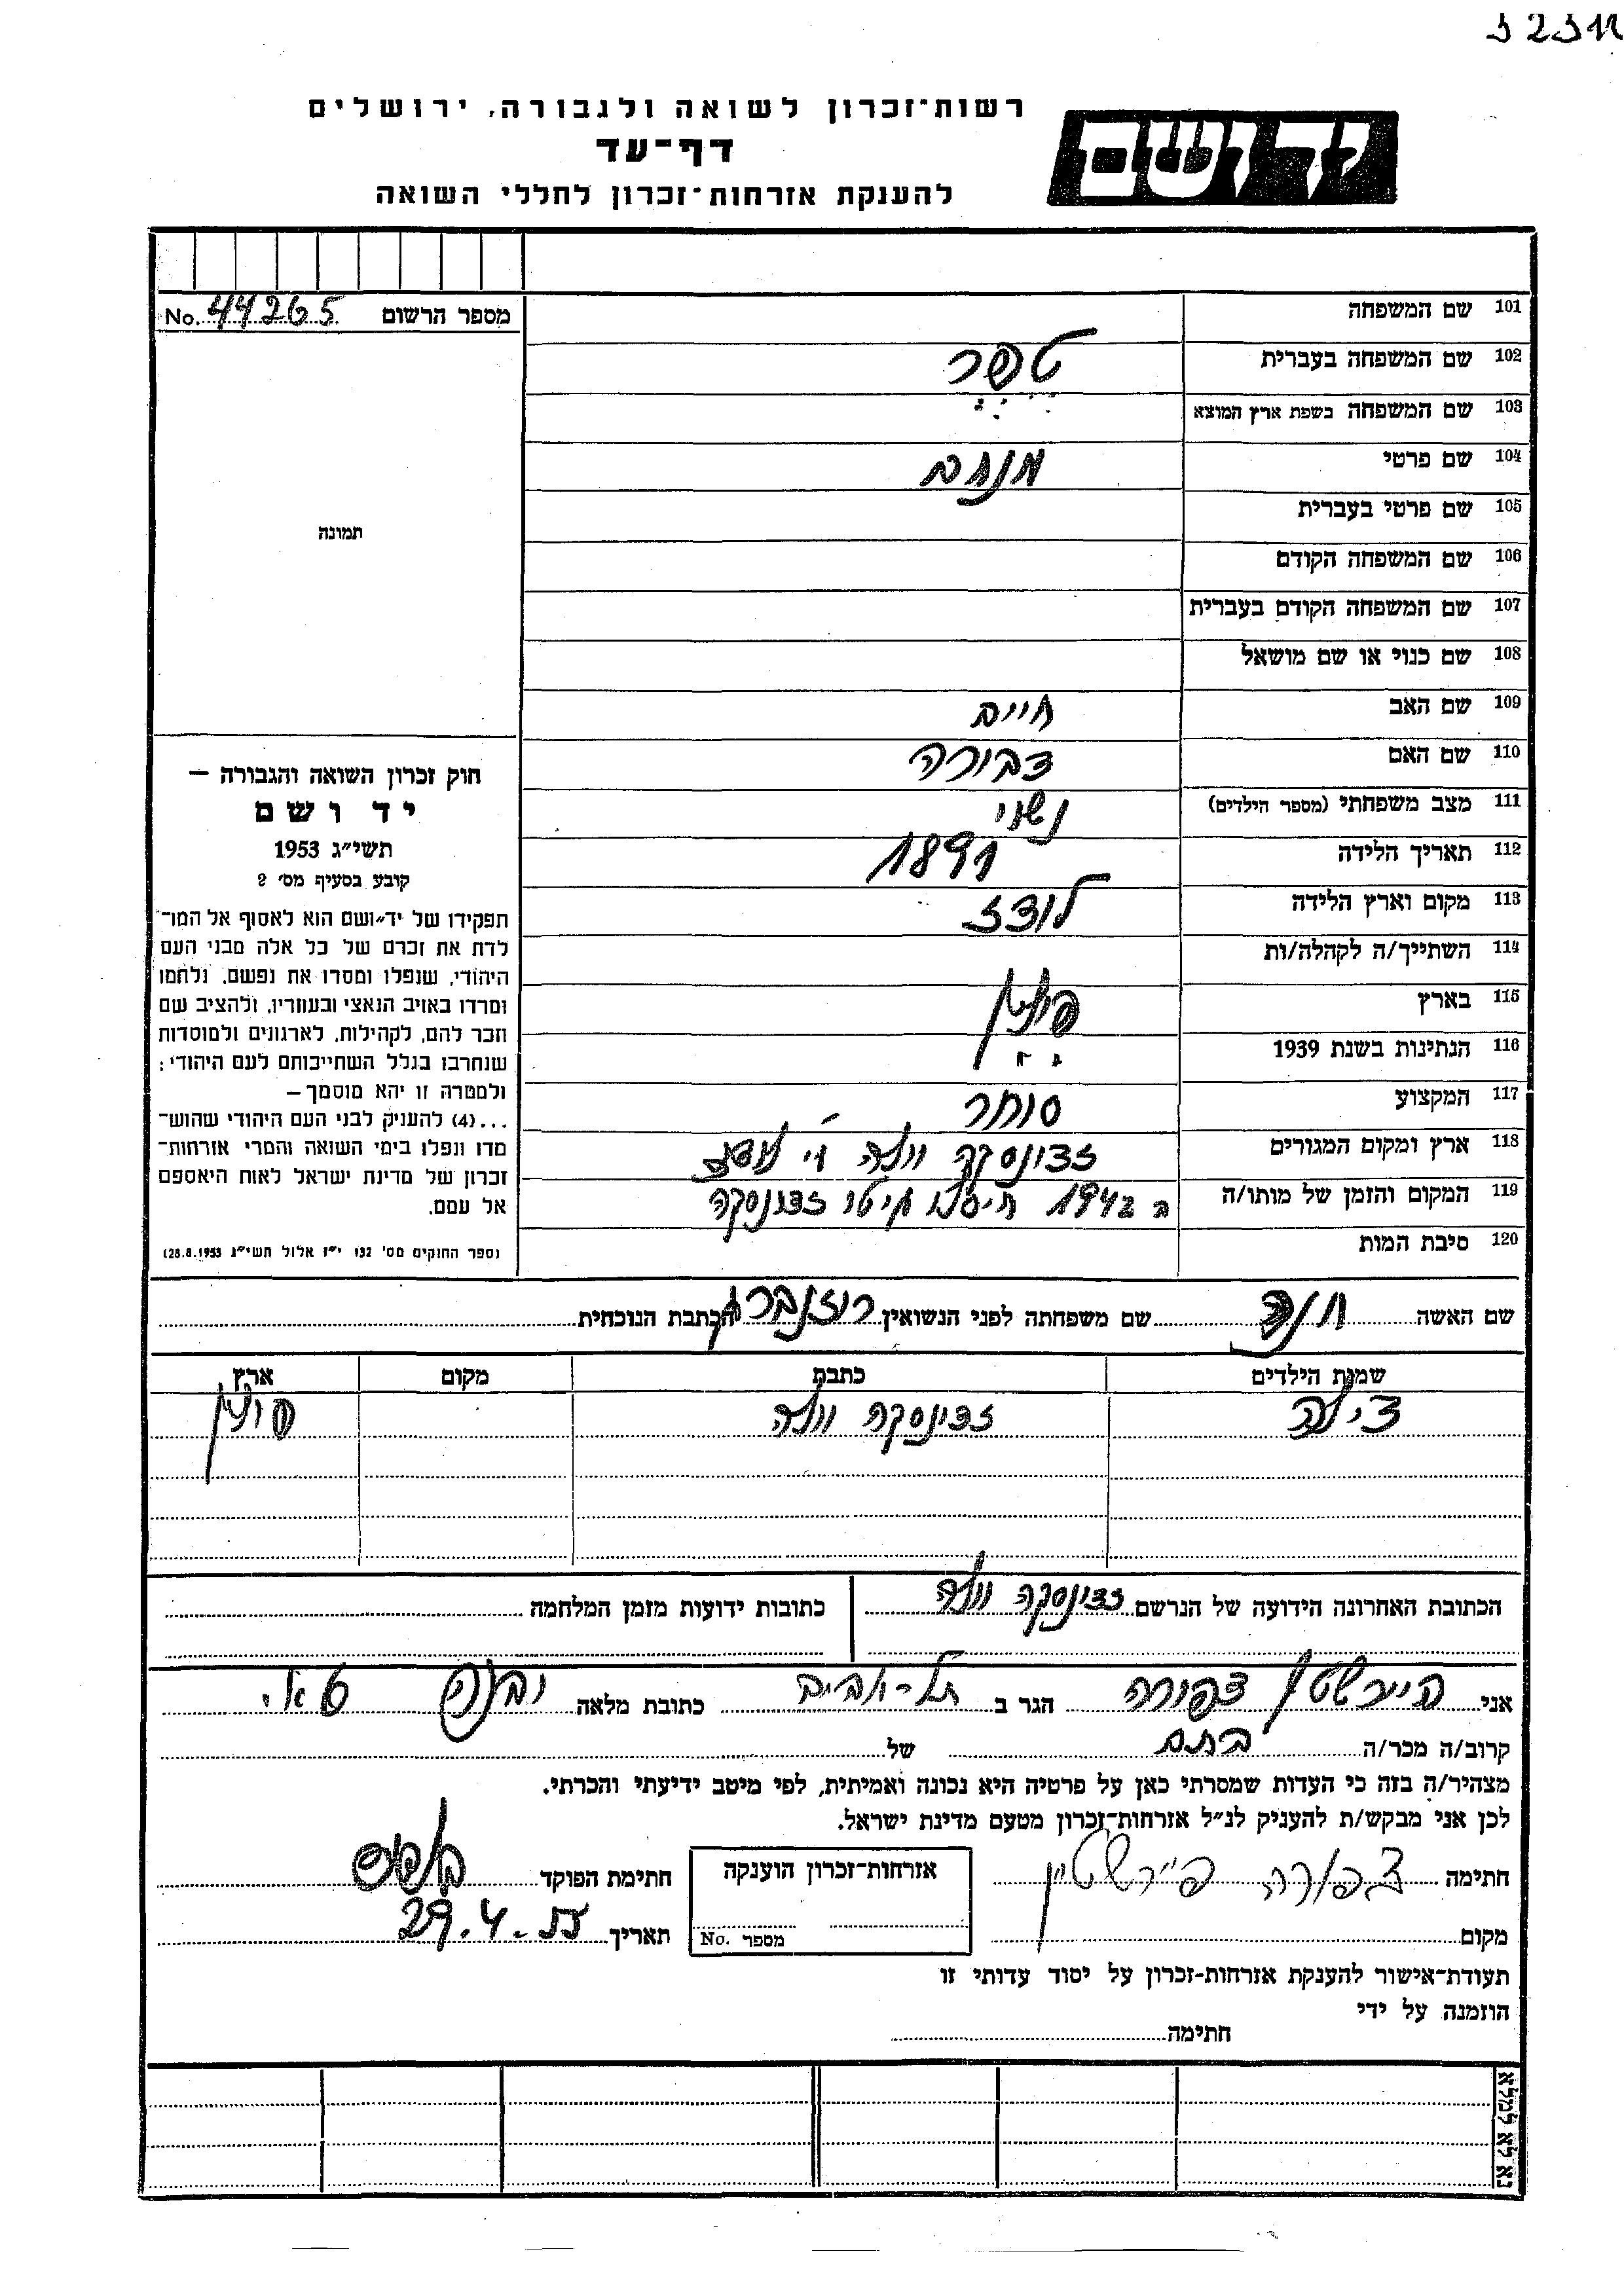 רשות־זכרון לשואה ולגבורה, ירושלים
דף־עד
להענקת אזרחות־זכרון לחללי השואה
יד ושם
מספר הרשום No. 44265
תמונה
101 שם המשפחה
102 שם המשפחה בעברית טפר
103 שם המשפחה בשפת ארץ המוצא
104 שם פרטי מנחם
105 שם פרטי בעברית
106 שם המשפחה הקודם
107 שם המשפחה הקודם בעברית
108 שם כנוי או שם מושאל
109 שם האב חיים
110 שם האם דבורה
111 מצב משפחתי (מספר הילדים) נשוי
112 תאריך הלידה 1891
113 מקום וארץ הלידה לודז
114 השתייך/ה לקהלה/ות
115 בארץ פולין
116 הנתינות בשנת 1939
117 המקצוע סוחר
118 ארץ ומקום המגורים זדונסקה וולה
119 המקום והזמן של מותו/ה ב 1942 זדונסקה
120 סיבת המות
חוק זכרון השואה והגבורה —
יד ושם
תשי״ג 1953
קובע בסעיף מס׳ 2
תפקידו של יד־ושם הוא לאסוף אל המו־
לדת את זכרם של כל אלה מבני העם
היהודי, שנפלו ומסרו את נפשם, נלחמו
ומרדו באויב הנאצי ובעוזריו, ולהציב שם
וזכר להם, לקהילות, לארגונים ולמוסדות
שנחרבו בגלל השתייכותם לעם היהודי;
ולמטרה זו יהא מוסמך —
...(4) להעניק לבני העם היהודי שהוש־
מדו ונפלו בימי השואה והמרי אזרחות־
זכרון של מדינת ישראל לאות היאספם
אל עמם.
(ספר החוקים מס׳ 132 י״ז אלול תשי״ג 28.8.1953)
שם האשה חנה שם משפחתה לפני הנשואין רוזנברג הכתבת הנוכחית
שמות הילדים כתבת מקום ארץ
צילה זדונסקה וולה פולין
הכתובת האחרונה הידועה של הנרשם זדונסקה וולה כתובות ידועות מזמן המלחמה
אני פיירשטין צפורה הגר ב תל-אביב כתובת מלאה יבנה
קרוב/ה מכר/ה בתם של
מצהיר/ה בזה כי העדות שמסרתי כאן על פרטיה היא נכונה ואמיתית, לפי מיטב ידיעתי והכרתי.
לכן אני מבקש/ת להעניק לנ״ל אזרחות־זכרון מטעם מדינת ישראל.
חתימה צפורה פיירשטין אזרחות־זכרון הוענקה חתימת הפוקד
מקום מספר No. תאריך 29.4.55
תעודת־אישור להענקת אזרחות-זכרון על יסוד עדותי זו
הוזמנה על ידי
חתימה
נא לא למלא